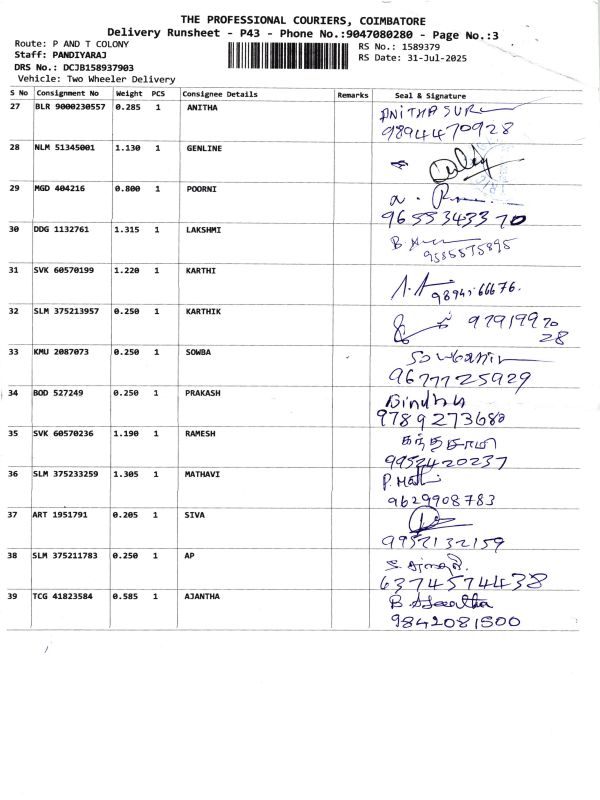 THE PROFESSIONAL COURIERS, COIMBATORE
Delivery Runsheet - P43 - Phone No.:9047080280 - Page No.:3
Route: P AND T COLONY
Staff: PANDIYARAJ
DRS No.: DCJB158937903
Vehicle: Two Wheeler Delivery
RS No.: 1589379
RS Date: 31-Jul-2025
S No Consignment No Weight PCS Consignee Details Remarks Seal & Signature
27 BLR 9000230557 0.285 1 ANITHA ANITHA
9894470928
28 NLM 51345001 1.130 1 GENLINE
29 MGD 404216 0.800 1 POORNI
9655343370
30 DDG 1132761 1.315 1 LAKSHMI
31 SVK 60570199 1.220 1 KARTHI
32 SLM 375213957 0.250 1 KARTHIK 97919970
28
33 KMU 2087073 0.250 1 SOWBA
9677725929
34 BOD 527249 0.250 1 PRAKASH Bindhu
9789273680
35 SVK 60570236 1.190 1 RAMESH கந்தசாமி
9952420237
36 SLM 375233259 1.305 1 MATHAVI
9629908783
37 ART 1951791 0.205 1 SIVA
9952132159
38 SLM 375211783 0.250 1 AP
6374574438
39 TCG 41823584 0.585 1 AJANTHA B Ajantha
9842081500